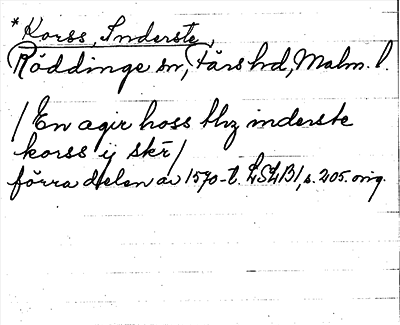 *Korss, Inderste,
Röddinge sn, Färs hd, Malm. l.
/ En ager hoss thz inderste
korss ij skr /
förra delen av 1570-t. LSLB1, s. 205. orig.